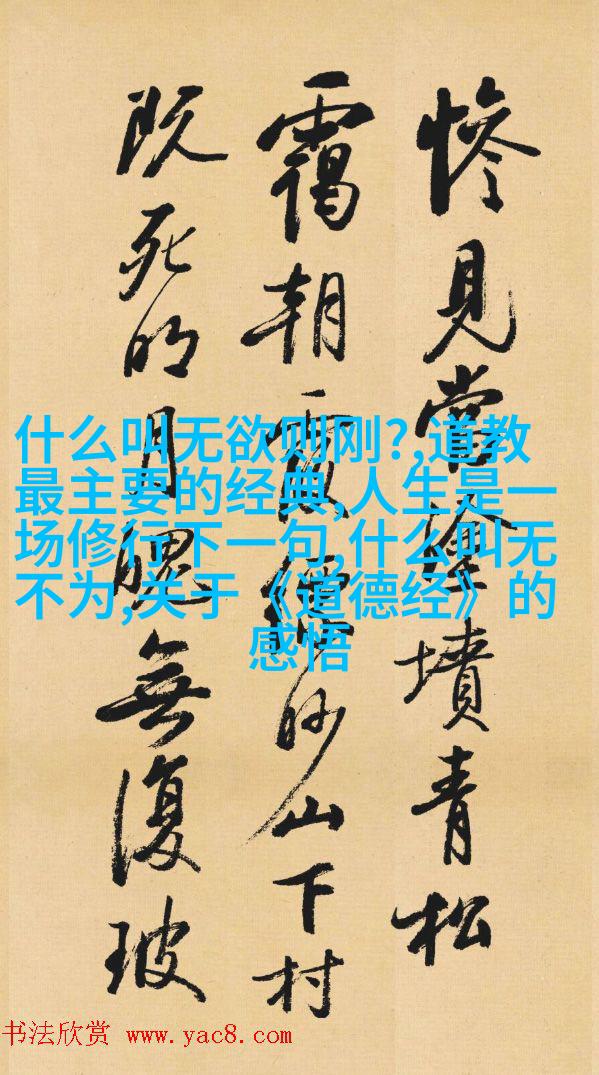 慘見當塗墳青松
靄朝霞縹眇山下村
既死明月魄無復玻
什么叫无欲则刚?,道教
最主要的经典,人生是一
场修行下一句,什么叫无
不为,关于《道德经》的
感悟
书法欣赏 www.yac8.com